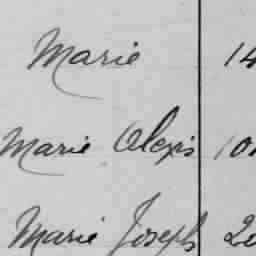 Marie 14
Marie Alexis 10
Marie Joseph 20